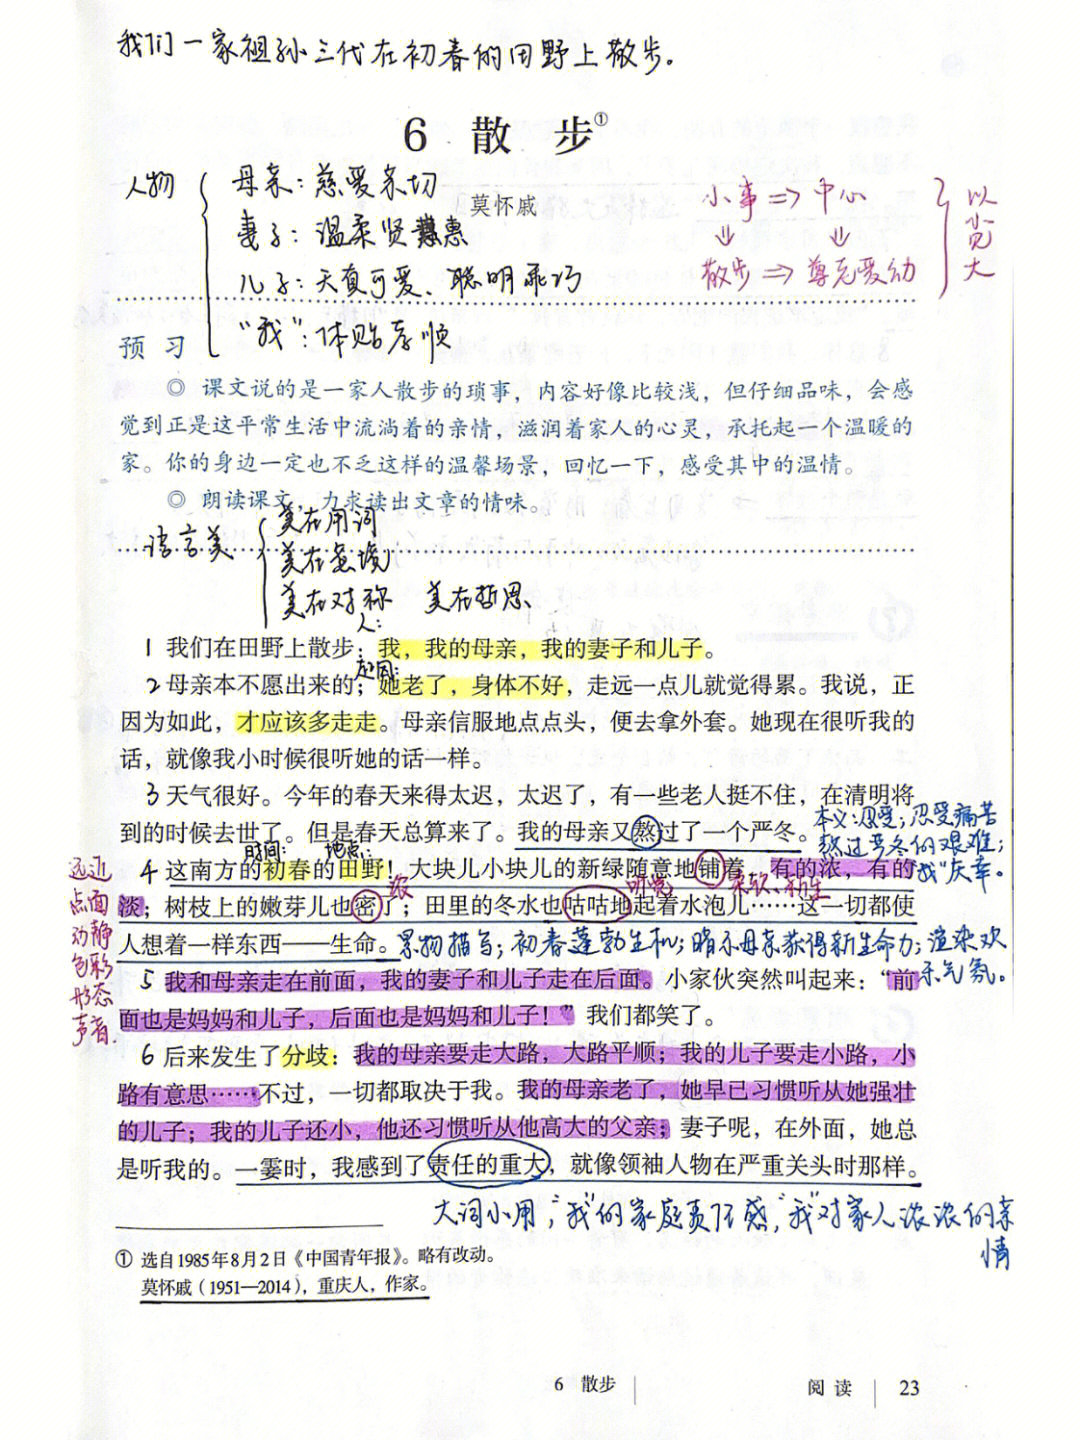 我们一家祖孙三代在初春的田野上散步。
6 散 步①
人物
母亲：慈爱亲切
莫怀戚
妻子：温柔贤惠
儿子：天真可爱、聪明乖巧
"我"：体贴孝顺
小事⇒中心
⇓ ⇓
散步⇒尊老爱幼
以
小
见
大
预 习
◎ 课文说的是一家人散步的琐事，内容好像比较浅，但仔细品味，会感
觉到正是这平常生活中流淌着的亲情，滋润着家人的心灵，承托起一个温暖的
家。你的身边一定也不乏这样的温馨场景，回忆一下，感受其中的温情。
◎ 朗读课文，力求读出文章的情味。
语言美
美在用词
美在意境
美在对称 美在哲思
人：
1 我们在田野上散步：我，我的母亲，我的妻子和儿子。
起因：
2 母亲本不愿出来的；她老了，身体不好，走远一点儿就觉得累。我说，正
因为如此，才应该多走走。母亲信服地点点头，便去拿外套。她现在很听我的
话，就像我小时候很听她的话一样。
3 天气很好。今年的春天来得太迟，太迟了，有一些老人挺不住，在清明将
到的时候去世了。但是春天总算来了。我的母亲又熬过了一个严冬。
本义：忍受；忍受痛苦
熬过严冬的艰难；
"我"庆幸。
时间： 地点：
4 这南方的初春的田野！大块儿小块儿的新绿随意地铺着，有的浓，有的
浓 听觉 柔软、新生
淡；树枝上的嫩芽儿也密了；田里的冬水也咕咕地起着水泡儿……这一切都使
人想着一样东西——生命。
景物描写；初春蓬勃生机；暗示母亲获得新生命力；渲染欢
乐气氛。
远近
点面
动静
色彩
形态
声音
5 我和母亲走在前面，我的妻子和儿子走在后面。小家伙突然叫起来：“前
面也是妈妈和儿子，后面也是妈妈和儿子！”我们都笑了。
6 后来发生了分歧：我的母亲要走大路，大路平顺；我的儿子要走小路，小
路有意思……不过，一切都取决于我。我的母亲老了，她早已习惯听从她强壮
的儿子；我的儿子还小，他还习惯听从他高大的父亲；妻子呢，在外面，她总
是听我的。一霎时，我感到了责任的重大，就像领袖人物在严重关头时那样。
大词小用，"我"的家庭责任感，"我"对家人浓浓的亲
情
① 选自1985年8月2日《中国青年报》。略有改动。
莫怀戚（1951—2014），重庆人，作家。
6 散步 阅 读 23